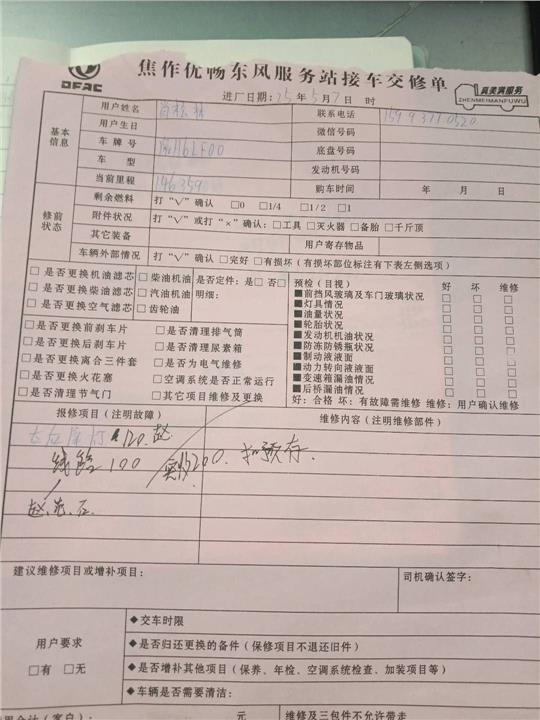 焦作优畅东风服务站接车交修单
DFAC
真美满服务
ZHENMEIMANFUWU
进厂日期：25年5月7日 时
基本信息
用户姓名 联系电话
用户生日 微信号码
车牌号 豫H61F00 底盘号码
车型 发动机号码
当前里程 146359 购车时间 年 月 日
修前状态
剩余燃料 打“√”确认 □0 □1/4 □1/2 □1
附件状况 打“√”或打“×”确认：□工具 □灭火器 □备胎 □千斤顶
其它装备 用户寄存物品
车辆外部情况 打“√”确认 □完好 □有损坏（有损坏部位标注有下表左侧选项）
□是否更换机油滤芯 □柴油机油 是否定件：是□ 否□
□是否更换柴油滤芯 □汽油机油 明细：
□是否更换空气滤芯 □齿轮油
□是否更换前刹车片 □是否清理排气筒
□是否更换后刹车片 □是否清理尿素箱
□是否更换离合三件套 □是否为电气维修
□是否更换火花塞 □空调系统是否正常运行
□是否清理节气门 □其它项目维修及更换
预检（目视） 好 坏 维修
■前挡风玻璃及车门玻璃状况 □ □ □
■灯具情况 □ □ □
■油量状况 □ □ □
■轮胎状况 □ □ □
■发动机机油状况 □ □ □
■防冻防锈瓶状况 □ □ □
■制动液液面 □ □ □
■动力转向液液面 □ □ □
■变速箱漏油情况 □ □ □
■后桥漏油情况 □ □ □
好：合格 坏：有故障需维修 维修：用户确认维修
报修项目（注明故障） 维修内容（注明维修部件）
120 赵
线路100 实收200. 扣预存.
建议维修项目或增补项目： 司机确认签字：
用户要求
□有 □无
◆交车时限
◆是否归还更换的备件（保修项目不退还旧件）
◆是否增补其他项目（保养、年检、空调系统检查、加装项目等）
◆车辆是否需要清洁：
费用合计（客户）： 元 维修及三包件不允许带走